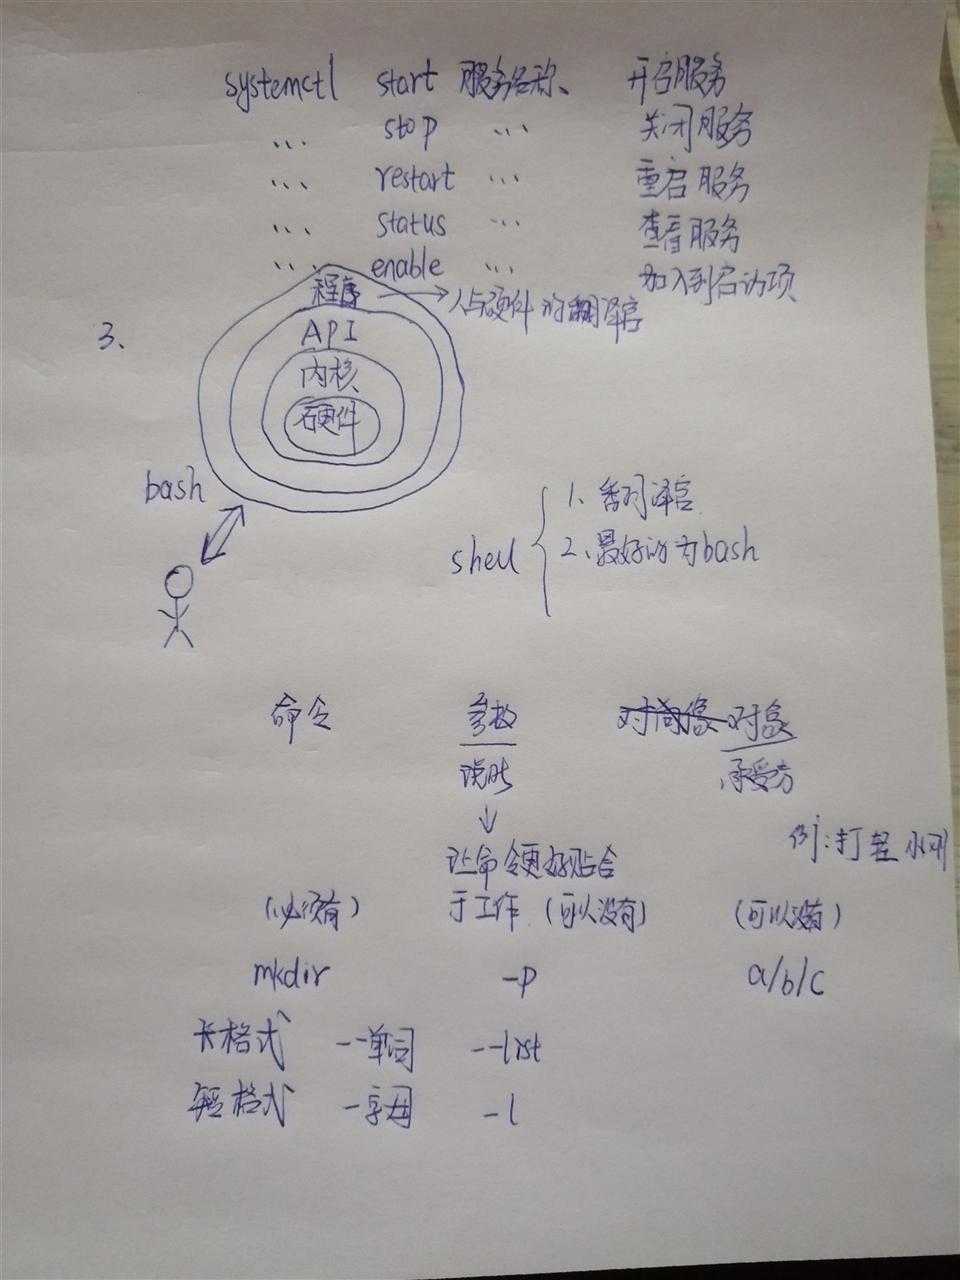 systemctl start 服务名称、 开启服务
... stop ... 关闭服务
... restart ... 重启服务
... status ... 查看服务
... enable ... 加入到启动项
程序 人与硬件的翻译官
3、
API
内核
硬件
bash
shell
1、翻译官
2、最好的为bash
命令 参数 对象
承受方
例:打 小刚
让命令更好贴合
(必须有) 于工作 (可以没有) (可以没有)
mkdir -p a/b/c
长格式 --单词 --list
短格式 -字母 -l